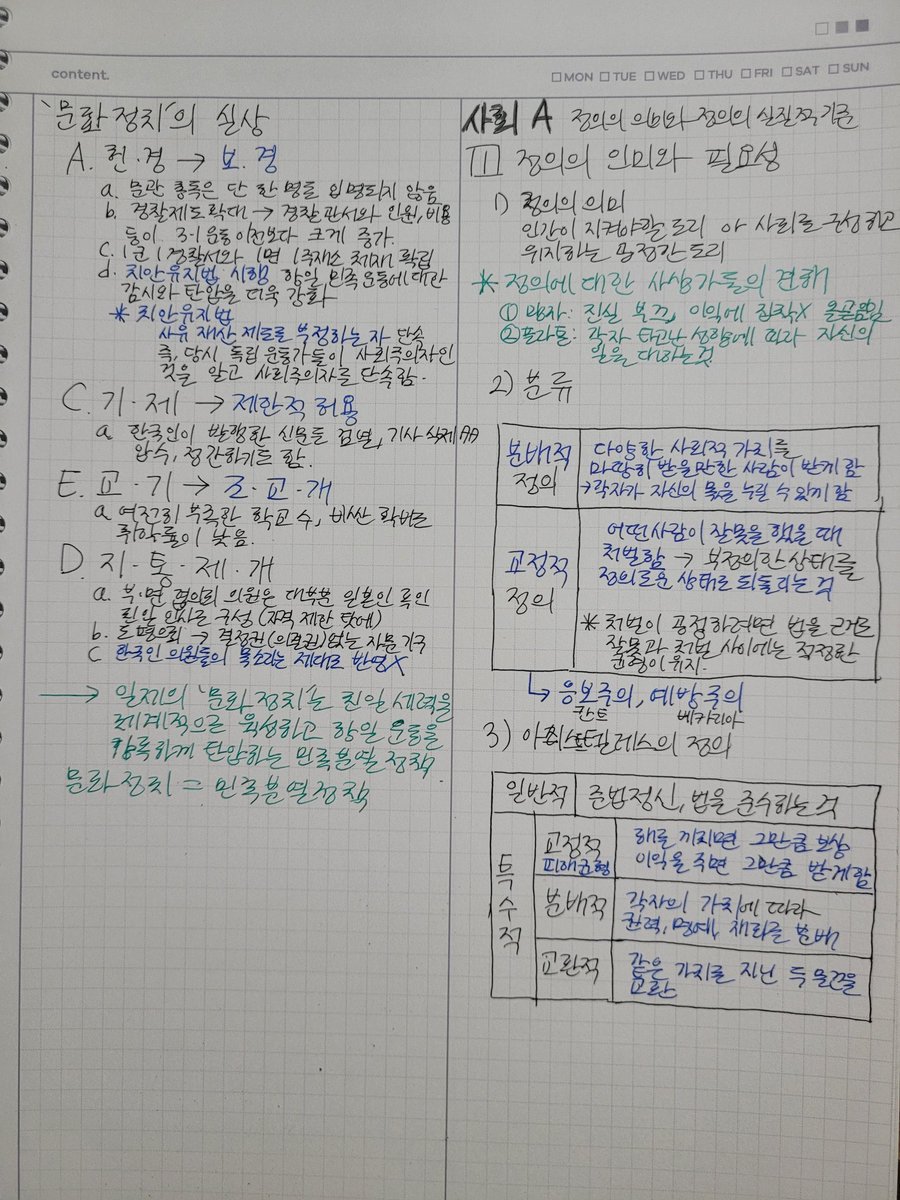 content.
☐MON ☐TUE ☐WED ☐THU ☐FRI ☐SAT ☐SUN
'문화 정치'의 실상
A. 헌·경 → 보·경
a. 문관 총독은 단 한 명도 임명되지 않음
b. 경찰제도 확대 → 경찰 관서와 인원, 비용
등이 3·1 운동 이전보다 크게 증가.
C. 1군 1경찰서와 1면 1주재소 체제 확립
d. 치안유지법 시행 항일 민족 운동에 대한
감시와 탄압을 더욱 강화
* 치안유지법
사유 재산 제도를 부정하는 자 단속
즉, 당시 독립 운동가들이 사회주의자인
것을 알고 사회주의자를 단속함.
C. 기·제 → 제한적 허용
a. 한국인이 발행한 신문들 검열, 기사 삭제
압수, 정간하기도 함.
E. 교·기 → 조·교·개
a. 여전히 부족한 학교 수, 비싼 학비로
취학률이 낮음.
D. 지·통·제·개
a. 부·면 협의회 의원은 대부분 일본인 혹은
친일 인사로 구성 (자격 제한 탓에)
b. 도평의회 → 결정권(의결권) 없는 자문 기구
C 한국인 의원들의 목소리는 제대로 반영X
→ 일제의 '문화 정치'는 친일 세력을
체계적으로 육성하고 항일 운동을
강력하게 탄압하는 민족분열 정책
문화 정치 = 민족분열정책
사회 A 정의의 의미와 정의의 실질적 기준
1 정의의 의미와 필요성
1) 정의의 의미
인간이 지켜야할 도리 아 사회를 구성하고
위지하는 공정한 도리
* 정의에 대한 사상가들의 견해
① 맹자: 진실 추구, 이익에 집착X 올곧음
②플라톤: 각자 타고난 성향에 따라 자신의
일을 다하는것
2) 분류
분배적 정의
다양한 사회적 가치를
마땅히 받을만한 사람이 받게 함
→각자가 자신의 몫을 누릴 수 있게 함
교정적
정의
어떤사람이 잘못을 했을 때
처벌함 → 부정의한 상태를
정의로운 상태로 되돌리는 것
* 처벌이 공정하려면 법을 근거로
잘못과 처벌 사이에는 적정한
균형이 위지.
↳ 응보주의, 예방주의
칸트 베카리아
3) 아리스토텔레스의 정의
일반적 준법정신, 법을 준수하는 것
특수적
교정적
피해균형
해를 끼치면 그만큼 보상
이익을 주면 그만큼 받게함
분배적
각자의 가치에 따라
권력, 명예, 재화를 분배
교환적
같은 가치를 지닌 두 물건을
교환